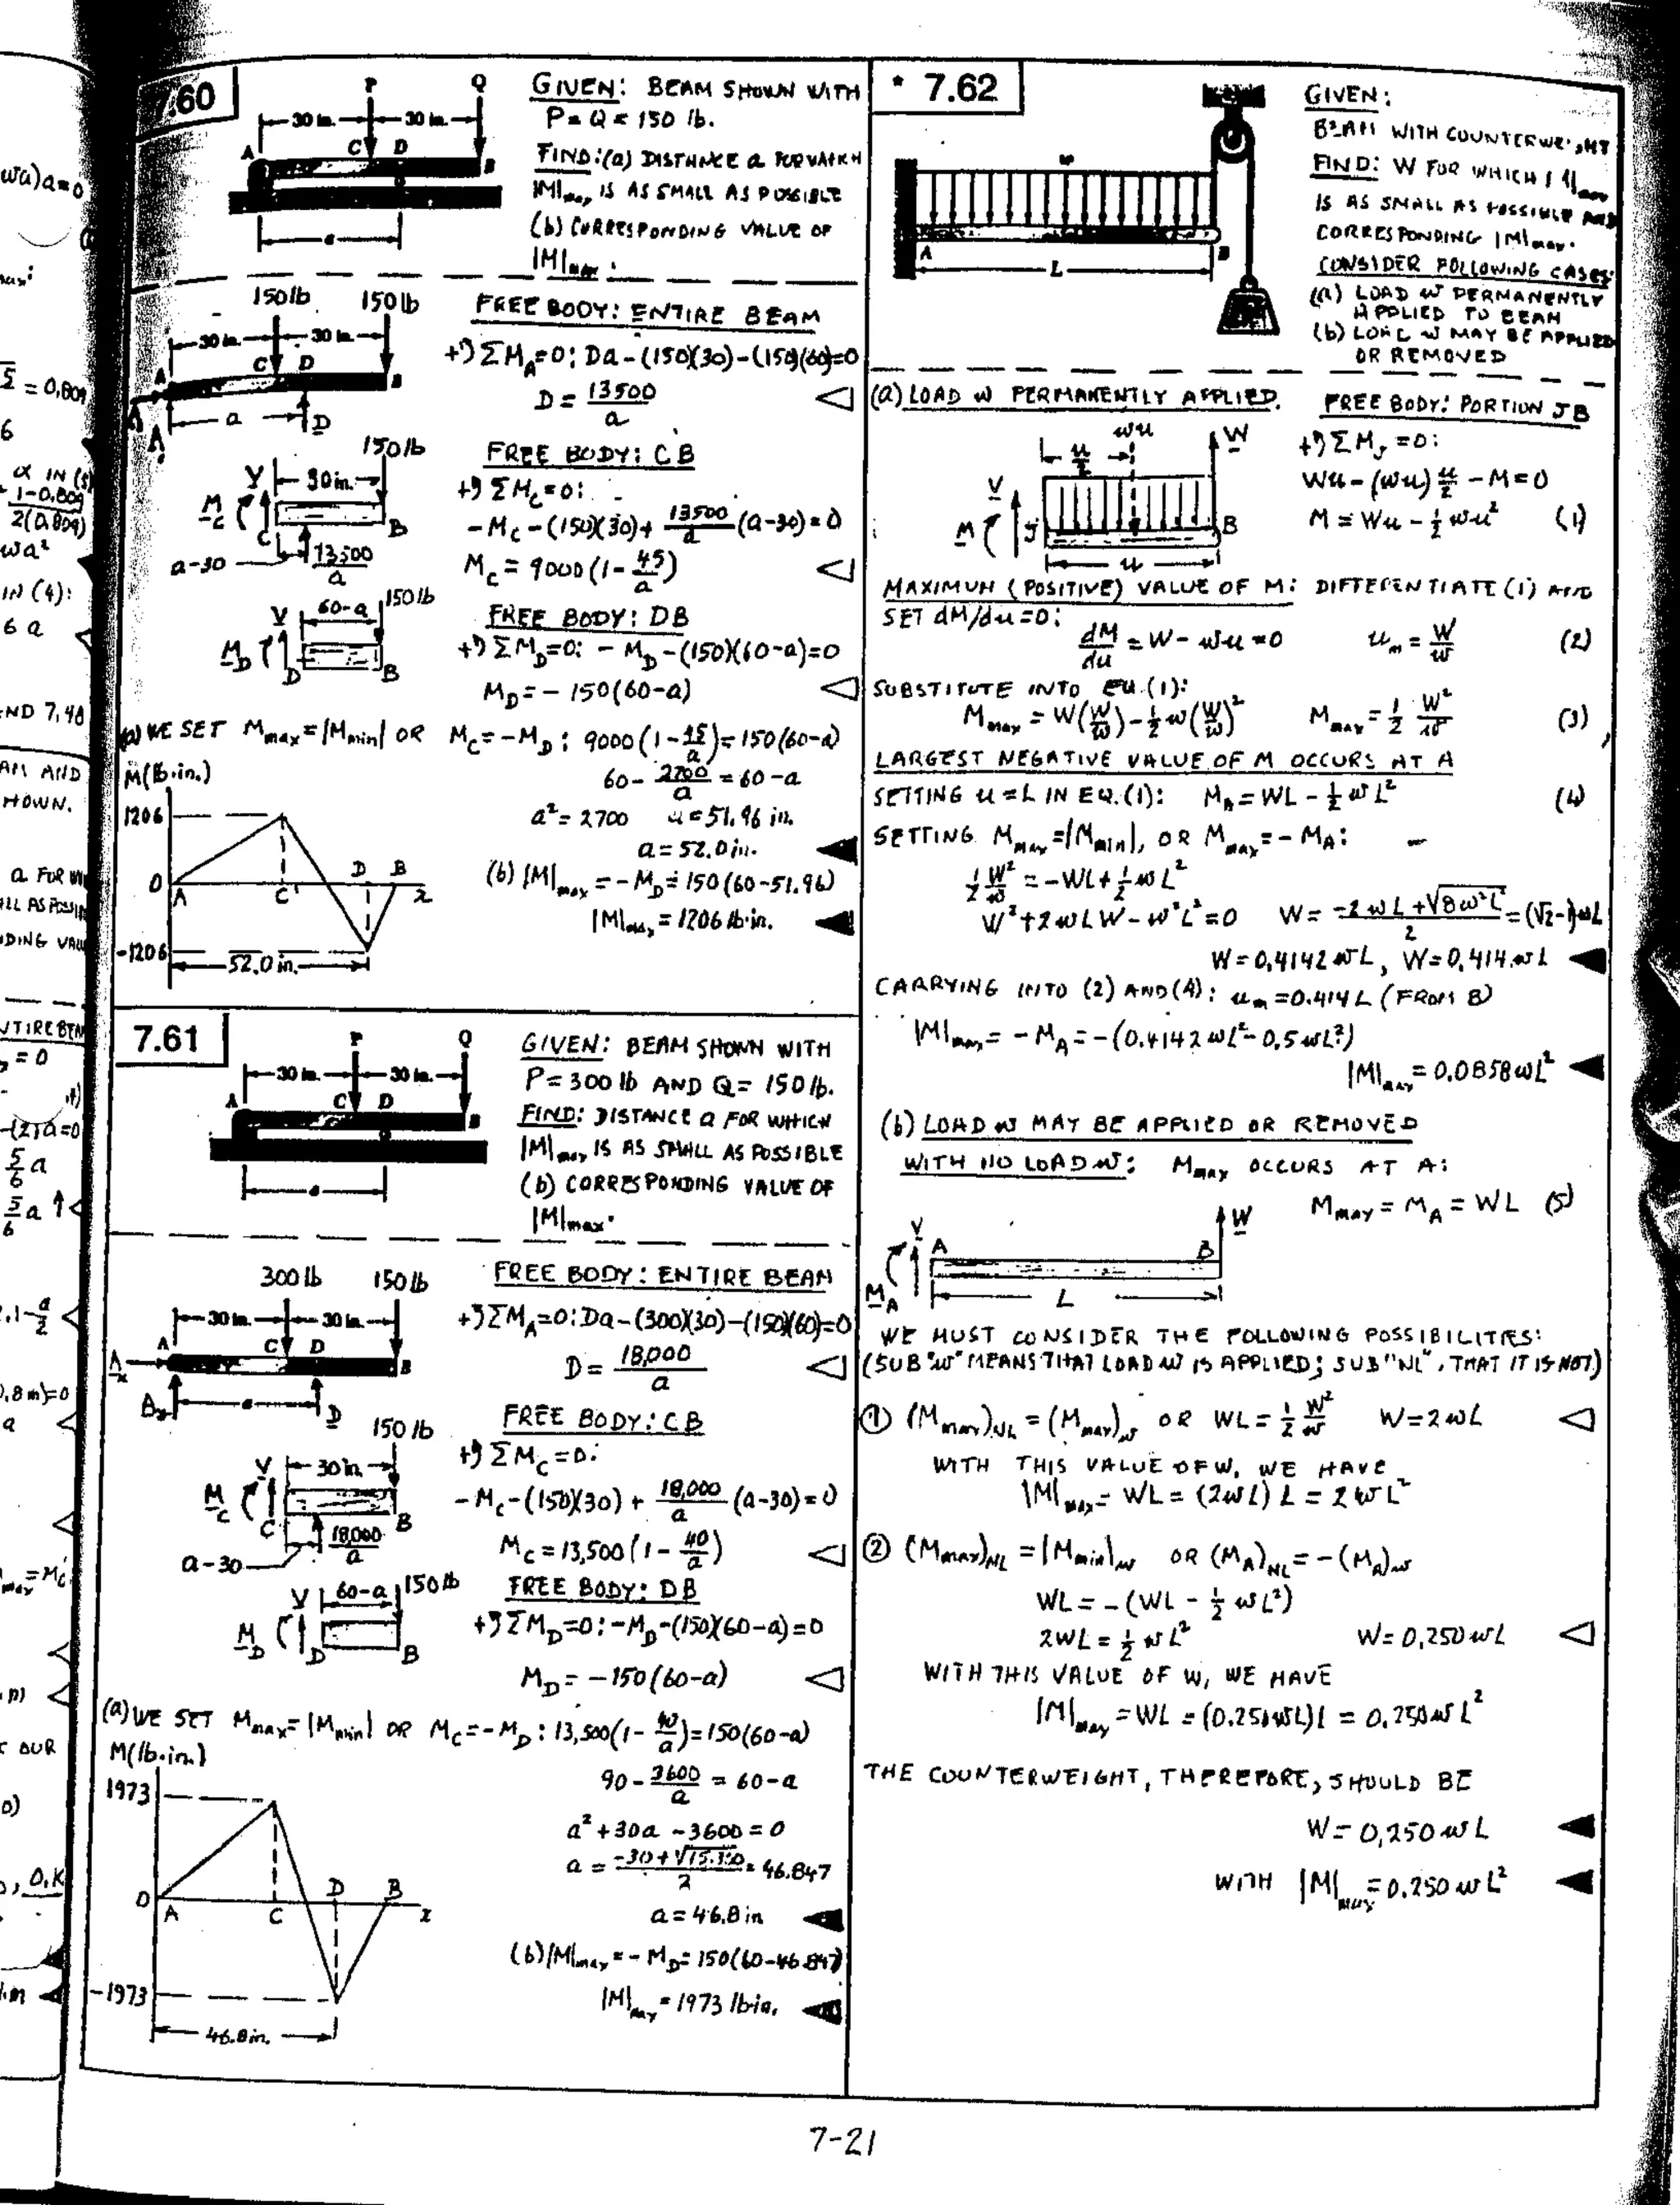 7.60
P
Q
30 in.
30 in.
A
C
D
B
a
GIVEN: BEAM SHOWN WITH
P = Q = 150 lb.
FIND: (a) DISTANCE a FOR WHICH
|M|max IS AS SMALL AS POSSIBLE
(b) CORRESPONDING VALUE OF
|M|max.
150 lb
150 lb
30 in.
30 in.
A
C
D
B
a
D
FREE BODY: ENTIRE BEAM
+↺ ΣM_A = 0: Da - (150)(30) - (150)(60) = 0
D = 13500/a
150 lb
V
30 in.
M_C
C
B
a-30
13500/a
FREE BODY: CB
+↺ ΣM_C = 0:
-M_C - (150)(30) + 13500/a (a-30) = 0
M_C = 9000 (1 - 45/a)
V
60-a
150 lb
M_D
D
B
FREE BODY: DB
+↺ ΣM_D = 0: -M_D - (150)(60-a) = 0
M_D = -150(60-a)
(a) WE SET Mmax = |Mmin| OR M_C = -M_D: 9000(1 - 45/a) = 150(60-a)
60 - 2700/a = 60 - a
a² = 2700 a = 51.96 in.
a = 52.0 in.
(b) |M|max = -M_D = 150(60-51.96)
|M|max = 1206 lb·in.
M(lb·in.)
1206
0
A
C
D
B
x
-1206
52.0 in.
7.61
P
Q
30 in.
30 in.
A
C
D
B
a
GIVEN: BEAM SHOWN WITH
P = 300 lb AND Q = 150 lb.
FIND: DISTANCE a FOR WHICH
|M|max IS AS SMALL AS POSSIBLE
(b) CORRESPONDING VALUE OF
|M|max.
300 lb
150 lb
30 in.
30 in.
A
C
D
B
a
D
FREE BODY: ENTIRE BEAM
+↺ ΣM_A = 0: Da - (300)(30) - (150)(60) = 0
D = 18,000/a
150 lb
V
30 in.
M_C
C
B
a-30
18,000/a
FREE BODY: CB
+↺ ΣM_C = 0:
-M_C - (150)(30) + 18,000/a (a-30) = 0
M_C = 13,500 (1 - 40/a)
V
60-a
150 lb
M_D
D
B
FREE BODY: DB
+↺ ΣM_D = 0: -M_D - (150)(60-a) = 0
M_D = -150(60-a)
(a) WE SET Mmax = |Mmin| OR M_C = -M_D: 13,500(1 - 40/a) = 150(60-a)
90 - 3600/a = 60 - a
a² + 30a - 3600 = 0
a = (-30 + √15.300)/2 = 46.847
a = 46.8 in
(b) |M|max = -M_D = 150(60-46.847)
|M|max = 1973 lb·in.
M(lb·in.)
1973
0
A
C
D
B
x
-1973
46.8 in.
* 7.62
w
A
B
L
GIVEN:
BEAM WITH COUNTERWEIGHT
FIND: W FOR WHICH |M|max
IS AS SMALL AS POSSIBLE AND
CORRESPONDING |M|max.
CONSIDER FOLLOWING CASES:
(a) LOAD w PERMANENTLY
APPLIED TO BEAM
(b) LOAD w MAY BE APPLIED
OR REMOVED
(a) LOAD w PERMANENTLY APPLIED.
wu
u/2
W
V
M
J
B
u
FREE BODY: PORTION JB
+↺ ΣM_J = 0:
Wu - (wu) u/2 - M = 0
M = Wu - ½ wu² (1)
MAXIMUM (POSITIVE) VALUE OF M: DIFFERENTIATE (1) AND
SET dM/du = 0:
dM/du = W - wu = 0 u_m = W/w (2)
SUBSTITUTE INTO EQ.(1):
Mmax = W(W/w) - ½ w(W/w)² Mmax = ½ W²/w (3)
LARGEST NEGATIVE VALUE OF M OCCURS AT A
SETTING u = L IN EQ.(1): M_A = WL - ½ wL² (4)
SETTING Mmax = |Mmin|, OR Mmax = -M_A:
½ W²/w = -WL + ½ wL²
W² + 2wLW - w²L² = 0 W = (-2wL + √8w²L²)/2 = (√2-1)wL
W = 0.4142 wL, W = 0.414 wL
CARRYING INTO (2) AND (4): u_m = 0.414 L (FROM B)
|M|max = -M_A = -(0.4142 wL² - 0.5 wL²)
|M|max = 0.0858 wL²
(b) LOAD w MAY BE APPLIED OR REMOVED
WITH NO LOAD w: Mmax OCCURS AT A:
Mmax = M_A = WL (5)
V
A
B
W
M_A
L
WE MUST CONSIDER THE FOLLOWING POSSIBILITIES:
(SUB "w" MEANS THAT LOAD w IS APPLIED; SUB "NL", THAT IT IS NOT)
① (Mmax)NL = (Mmax)w OR WL = ½ W²/w W = 2wL
WITH THIS VALUE OF W, WE HAVE
|M|max = WL = (2wL)L = 2wL²
② (Mmax)NL = |Mmin|w OR (M_A)NL = -(M_A)w
WL = -(WL - ½ wL²)
2WL = ½ wL² W = 0.250 wL
WITH THIS VALUE OF W, WE HAVE
|M|max = WL = (0.250wL)L = 0.250 wL²
THE COUNTERWEIGHT, THEREFORE, SHOULD BE
W = 0.250 wL
WITH |M|max = 0.250 wL²
7-21